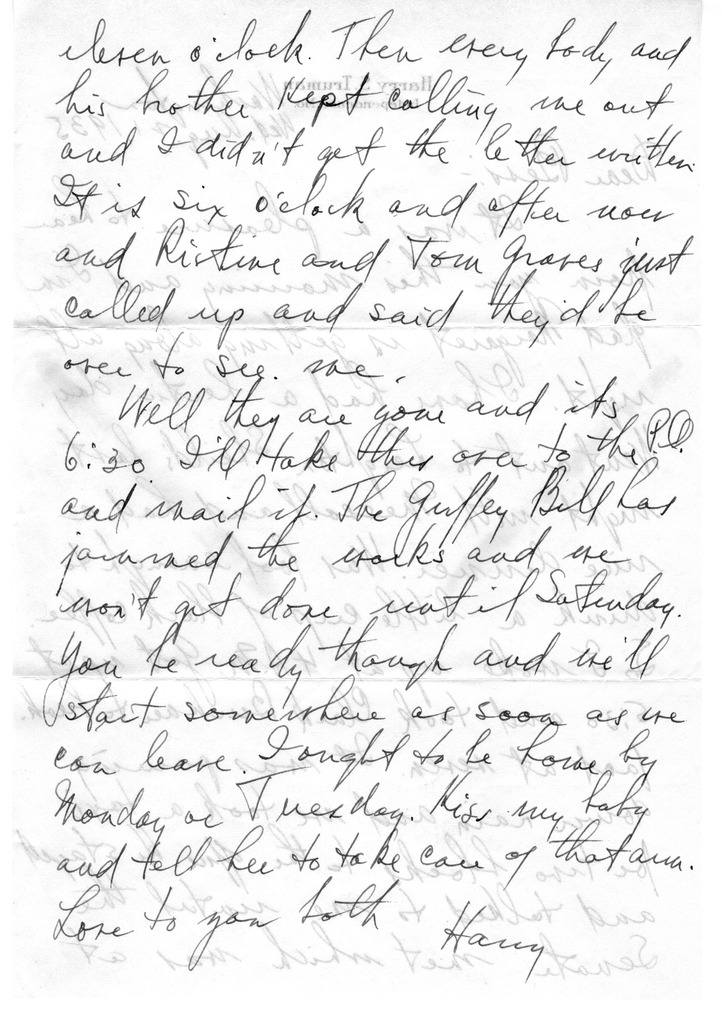 eleven o'clock. Then every body and
his brother kept calling me out
and I didn't get the letter written.
It is six o'clock and after now
and Ristine and Tom Graves just
called up and said they'd be
over to see me.
Well they are gone and its
6:30 I'll take this over to the P.O.
and mail it. The Guffey Bill has
jammed the works and we
won't get done until Saturday.
You be ready though and we'll
start somewhere as soon as we
can leave. I ought to be home by
Monday or Tuesday. Kiss my baby
and tell her to take care of that arm.
Love to you both Harry